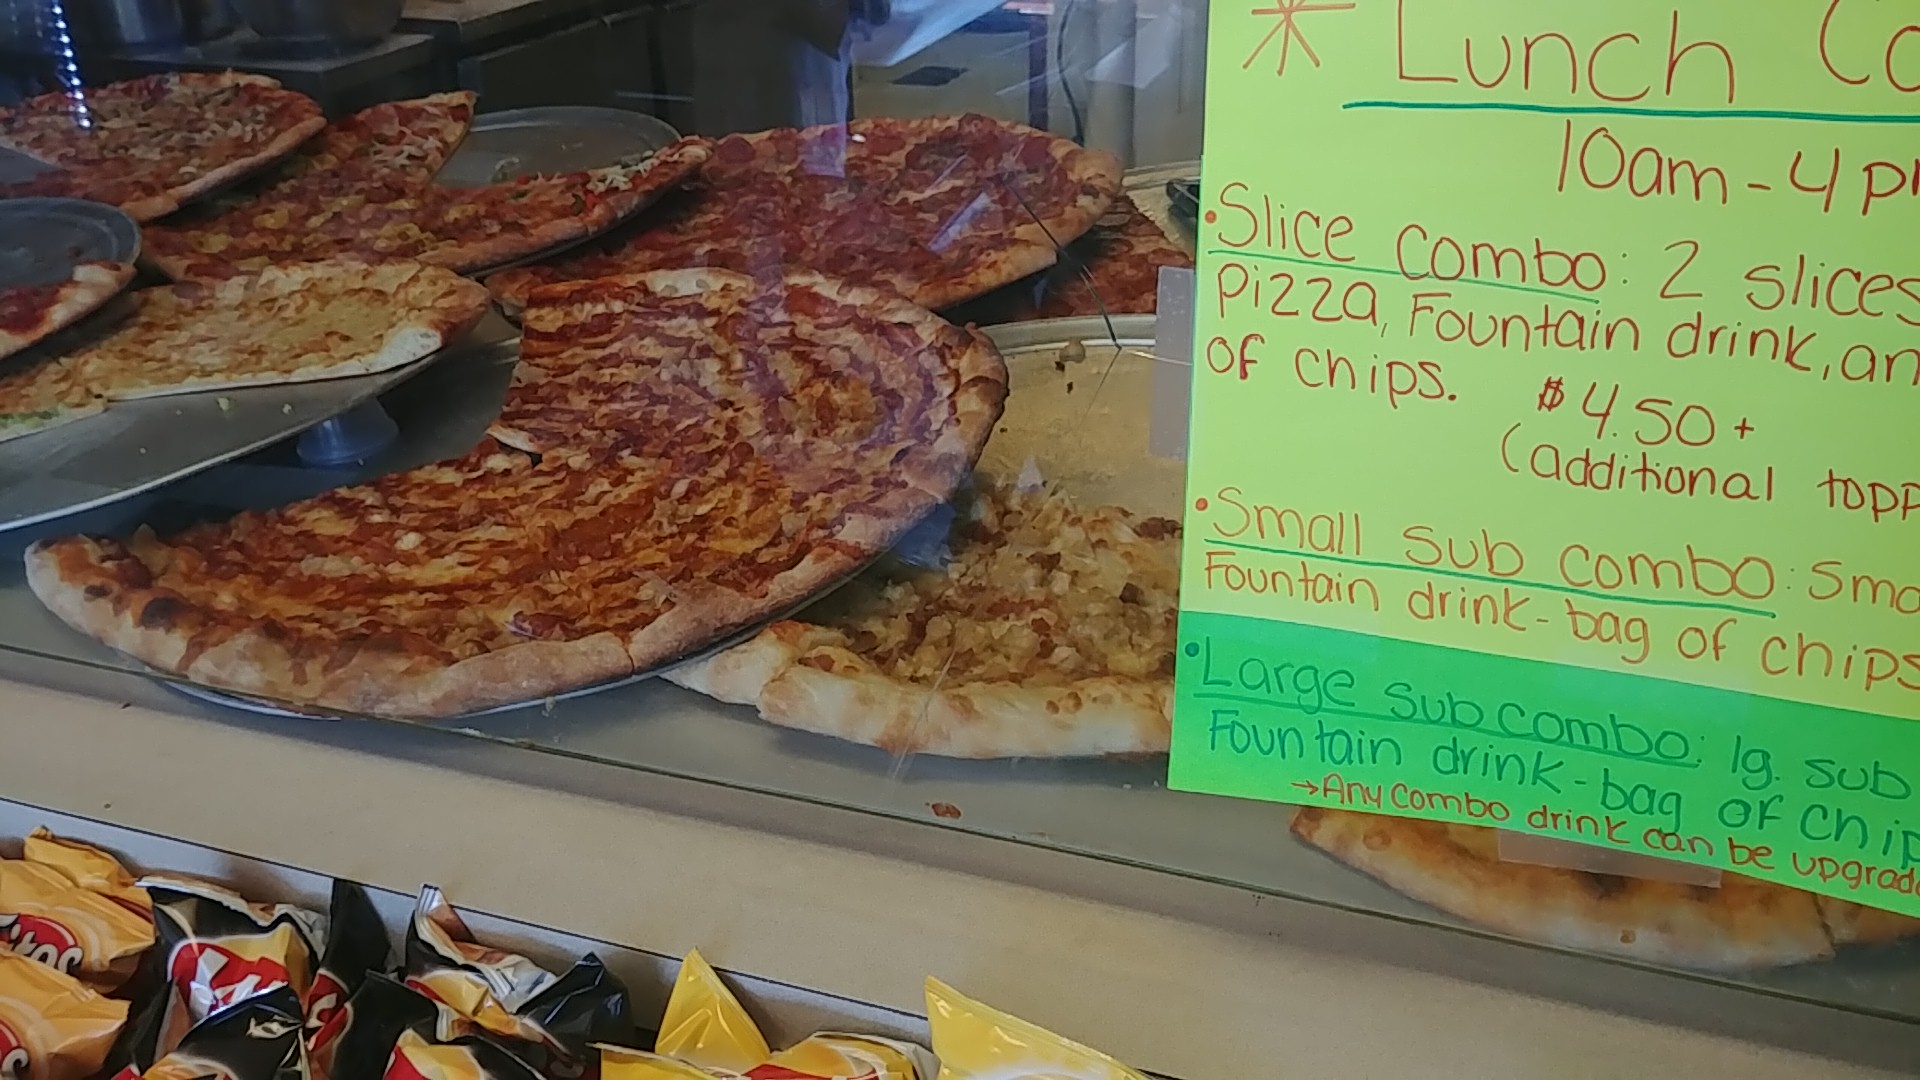 * Lunch Co
10am - 4 p
• Slice combo: 2 slices
Pizza, Fountain drink, an
of chips. $4.50+
(additional topp
• Small sub combo: Sma
Fountain drink - bag of chips
• Large sub combo: lg. sub
Fountain drink - bag of chip
→ Any combo drink can be upgrade